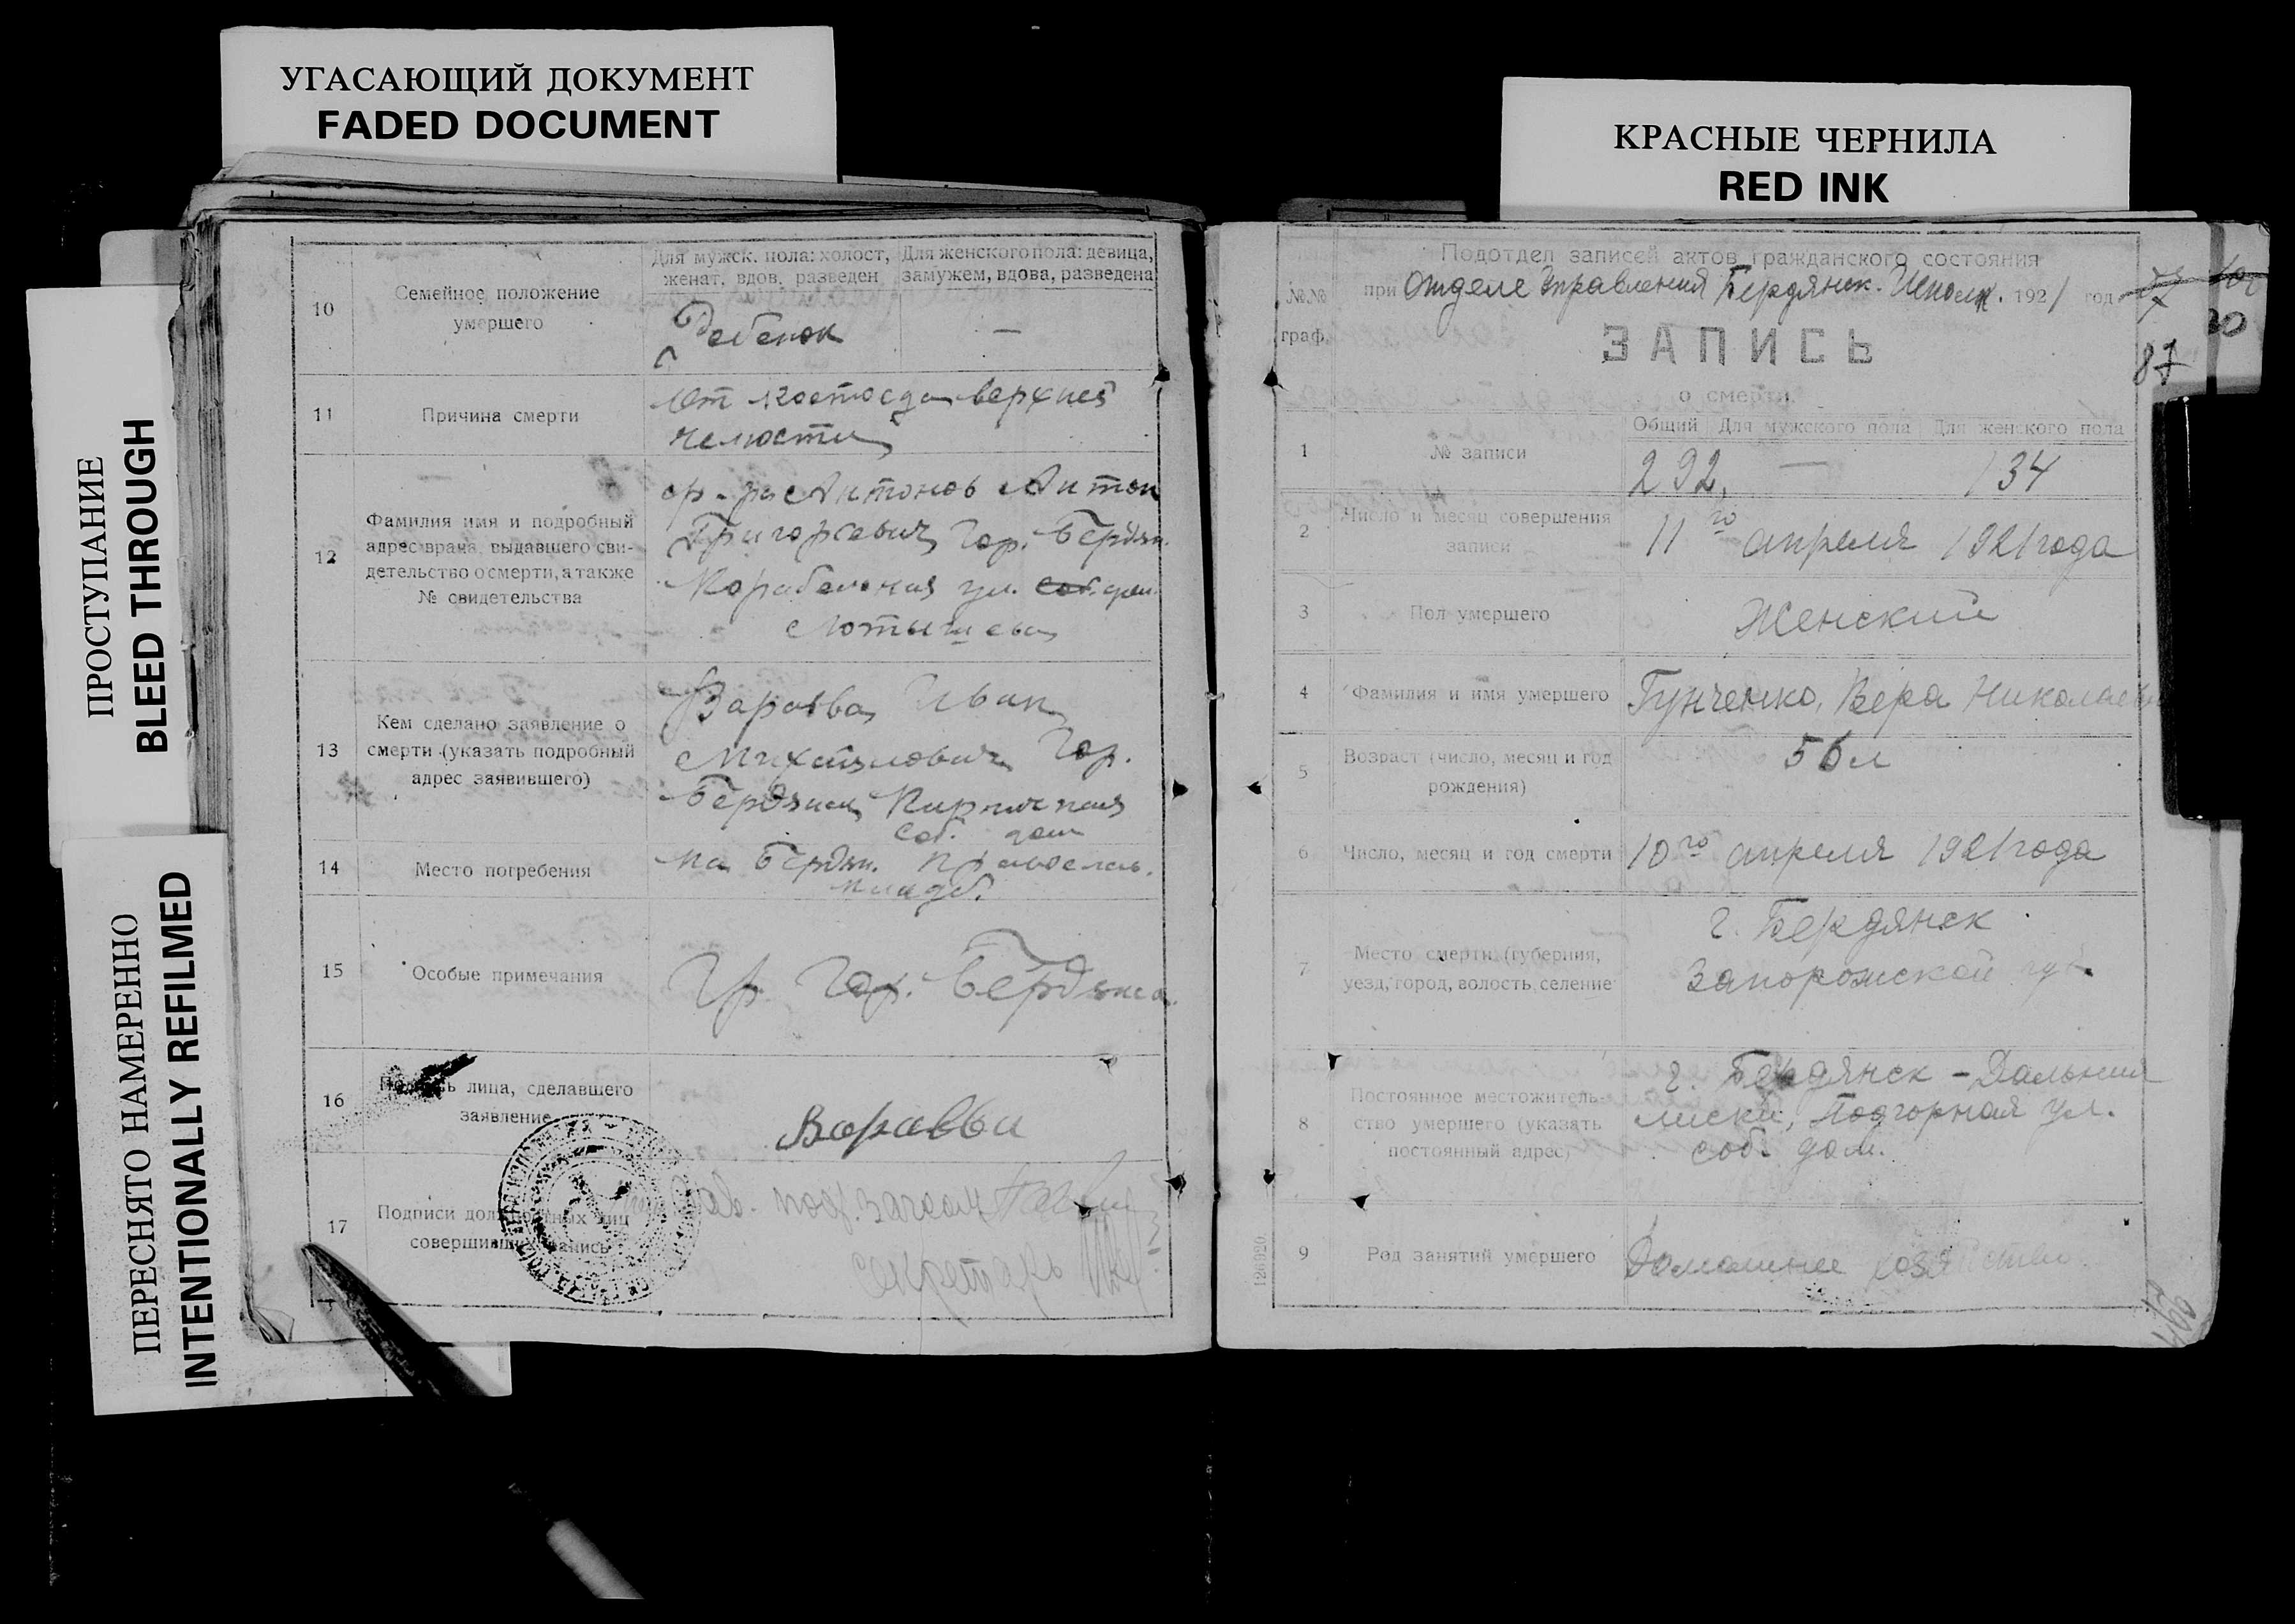 УГАСАЮЩИЙ ДОКУМЕНТ
FADED DOCUMENT
КРАСНЫЕ ЧЕРНИЛА
RED INK
ПРОСТУПАНИЕ
BLEED THROUGH
ПЕРЕСНЯТО НАМЕРЕННО
INTENTIONALLY REFILMED
10
Семейное положение
умершего
Для мужск. пола: холост,
женат, вдов, разведен
Для женского пола: девица,
замужем, вдова, разведена
Ребенок
—
11
Причина смерти
От костоеда верхней
челюсти
12
Фамилия имя и подробный
адрес врача, выдавшего сви-
детельство о смерти, а также
№ свидетельства
Антонов Антон
Григорьевич Гор. Бердян.
Корабельная ул.
Лотышева
13
Кем сделано заявление о
смерти (указать подробный
адрес заявившего)
Варавва Иван
Михайлович Гор.
Бердянск Кирпичная
соб. дом
14
Место погребения
на Бердян. Православ.
кладб.
15
Особые примечания
Гр. Гор. Бердянска.
16
Подпись лица, сделавшего
заявление
Варавва
17
Подписи должностных лиц
совершивших запись
Зав. под.
секретарь
Подотдел записей актов гражданского состояния
№№
граф.
при Отделе Управления Бердянск. Исполк. 1921 год
87
ЗАПИСЬ
о смерти.
1
№ записи
Общий
Для мужского пола
Для женского пола
292,
—
134
2
Число и месяц совершения
записи
11го апреля 1921 года
3
Пол умершего
Женский
4
Фамилия и имя умершего
Гунченко, Вера Николаевна
5
Возраст (число, месяц и год
рождения)
56 л
6
Число, месяц и год смерти
10го апреля 1921 года
7
Место смерти (губерния,
уезд, город, волость, селение
г. Бердянск
Запорожской губ.
8
Постоянное местожитель-
ство умершего (указать
постоянный адрес)
г. Бердянск - Дальния
лиски, Подгорная ул.
соб. дом.
9
Род занятий умершего
Домашнее хозяйство
126920